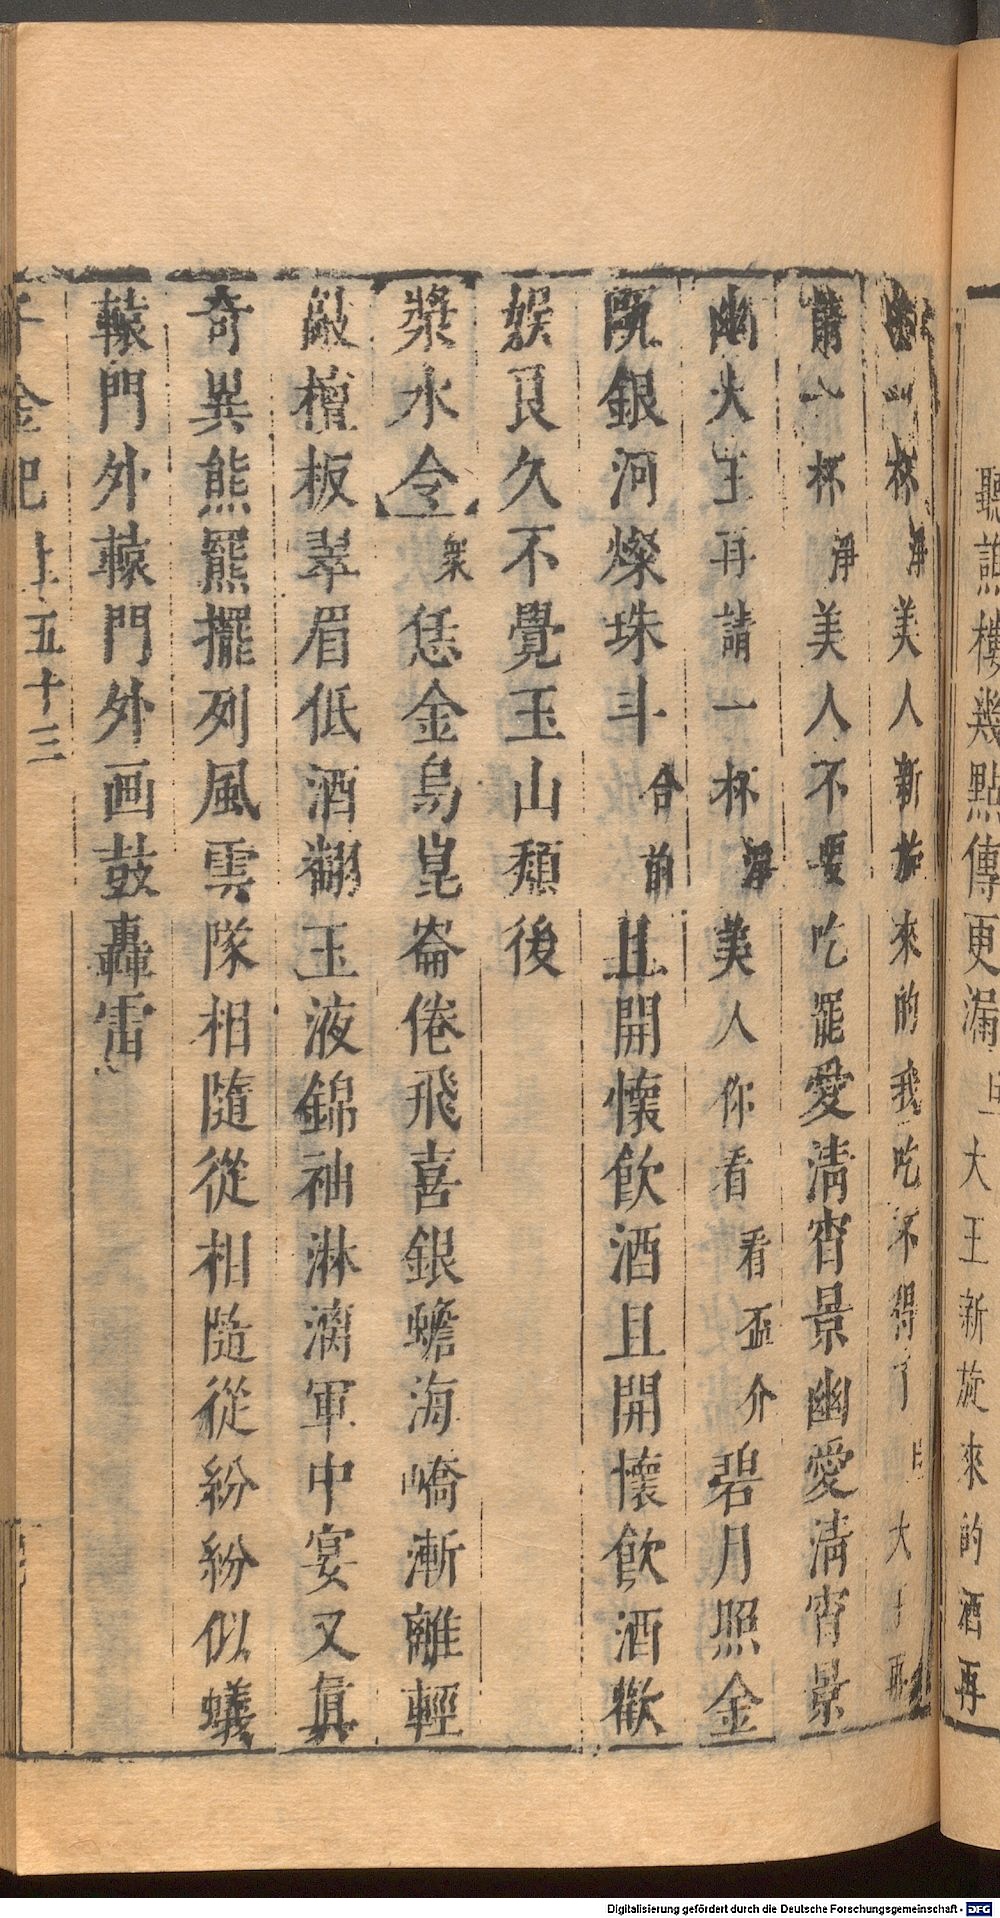 聽譙樓幾點傳更漏 旦 大王新旋來的酒再
一杯 淨 美人新旋來的我吃不得了 旦 大王再
一杯 淨 美人不要吃罷愛淸宵景幽愛淸宵景
幽大王再請一杯 淨 美人你看 看盃介 碧月照金
甌銀河燦珠斗 合前 且開懷飲酒且開懷飲酒歡
娛良久不覺玉山頹後
漿水令 衆 恁金烏崑崙倦飛喜銀蟾海嶠漸離輕
敲檀板翠眉低酒翻玉液錦袖淋漓軍中宴又眞
奇異熊羆擺列風雲隊相隨從相隨從紛紛似蟻
轅門外轅門外画鼓轟雷
千金記 上 五十三
Digitalisierung gefördert durch die Deutsche Forschungsgemeinschaft - DFG